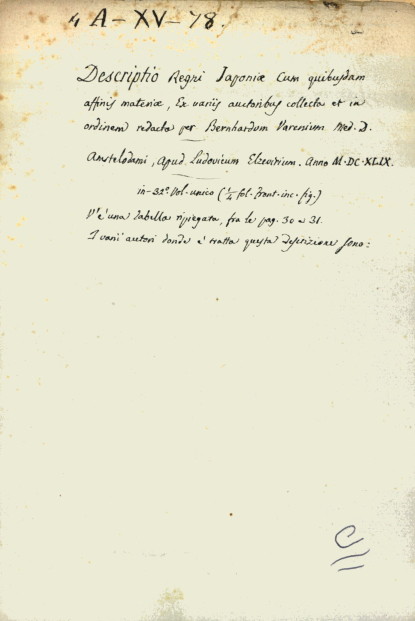 4 A-XV-78.
Descriptio Regni Japoniæ Cum quibusdam
affinis materiæ, Ex variis auctoribus collecta et in
ordinem redacta per Bernhardum Varenium Med. D.
Amstelodami, Apud Ludovicum Elzevirium. Anno M.DC.XLIX.
in-32º Vol. unico (1/4 fol. front. inc. fig.)
V'è una Tabella ripiegata, fra le pag. 30 e 31.
I varii autori donde è tratta questa Descrizione sono: